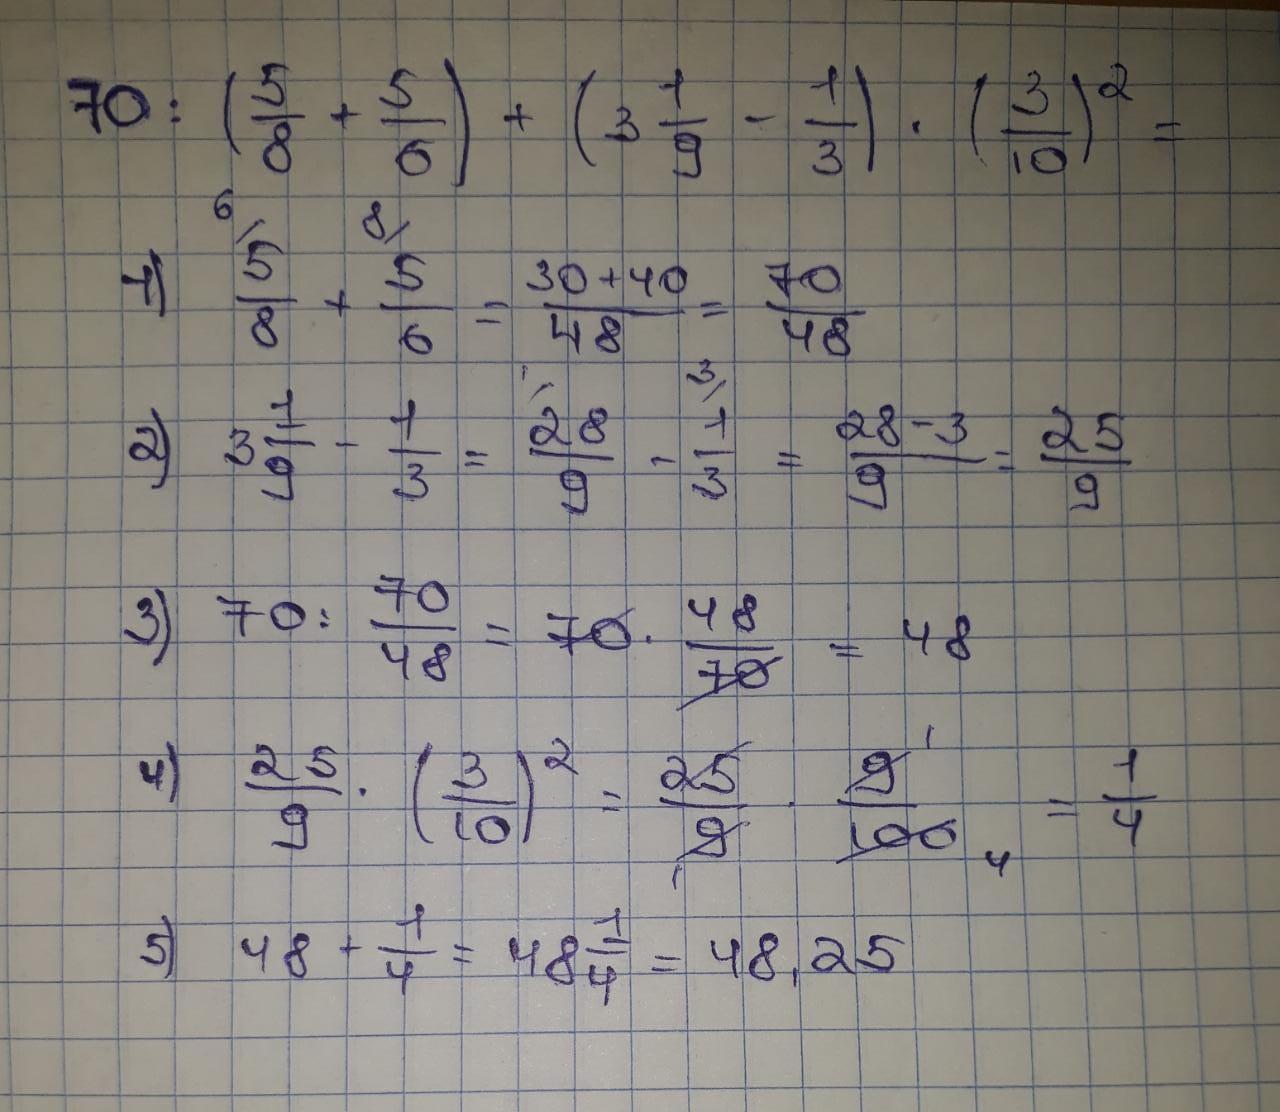 70 : (5/8 + 5/6) + (3 1/9 - 1/3) · (3/10)² =
1) 6/ 5/8 + 8/ 5/6 = 30+40/48 = 70/48
2) 3 1/9 - 1/3 = 1/ 28/9 - 3/ 1/3 = 28-3/9 = 25/9
3) 70 : 70/48 = 70 · 48/70 = 48
4) 25/9 · (3/10)² = 25/9 1 · 9/100 1 4 = 1/4
5) 48 + 1/4 = 48 1/4 = 48,25